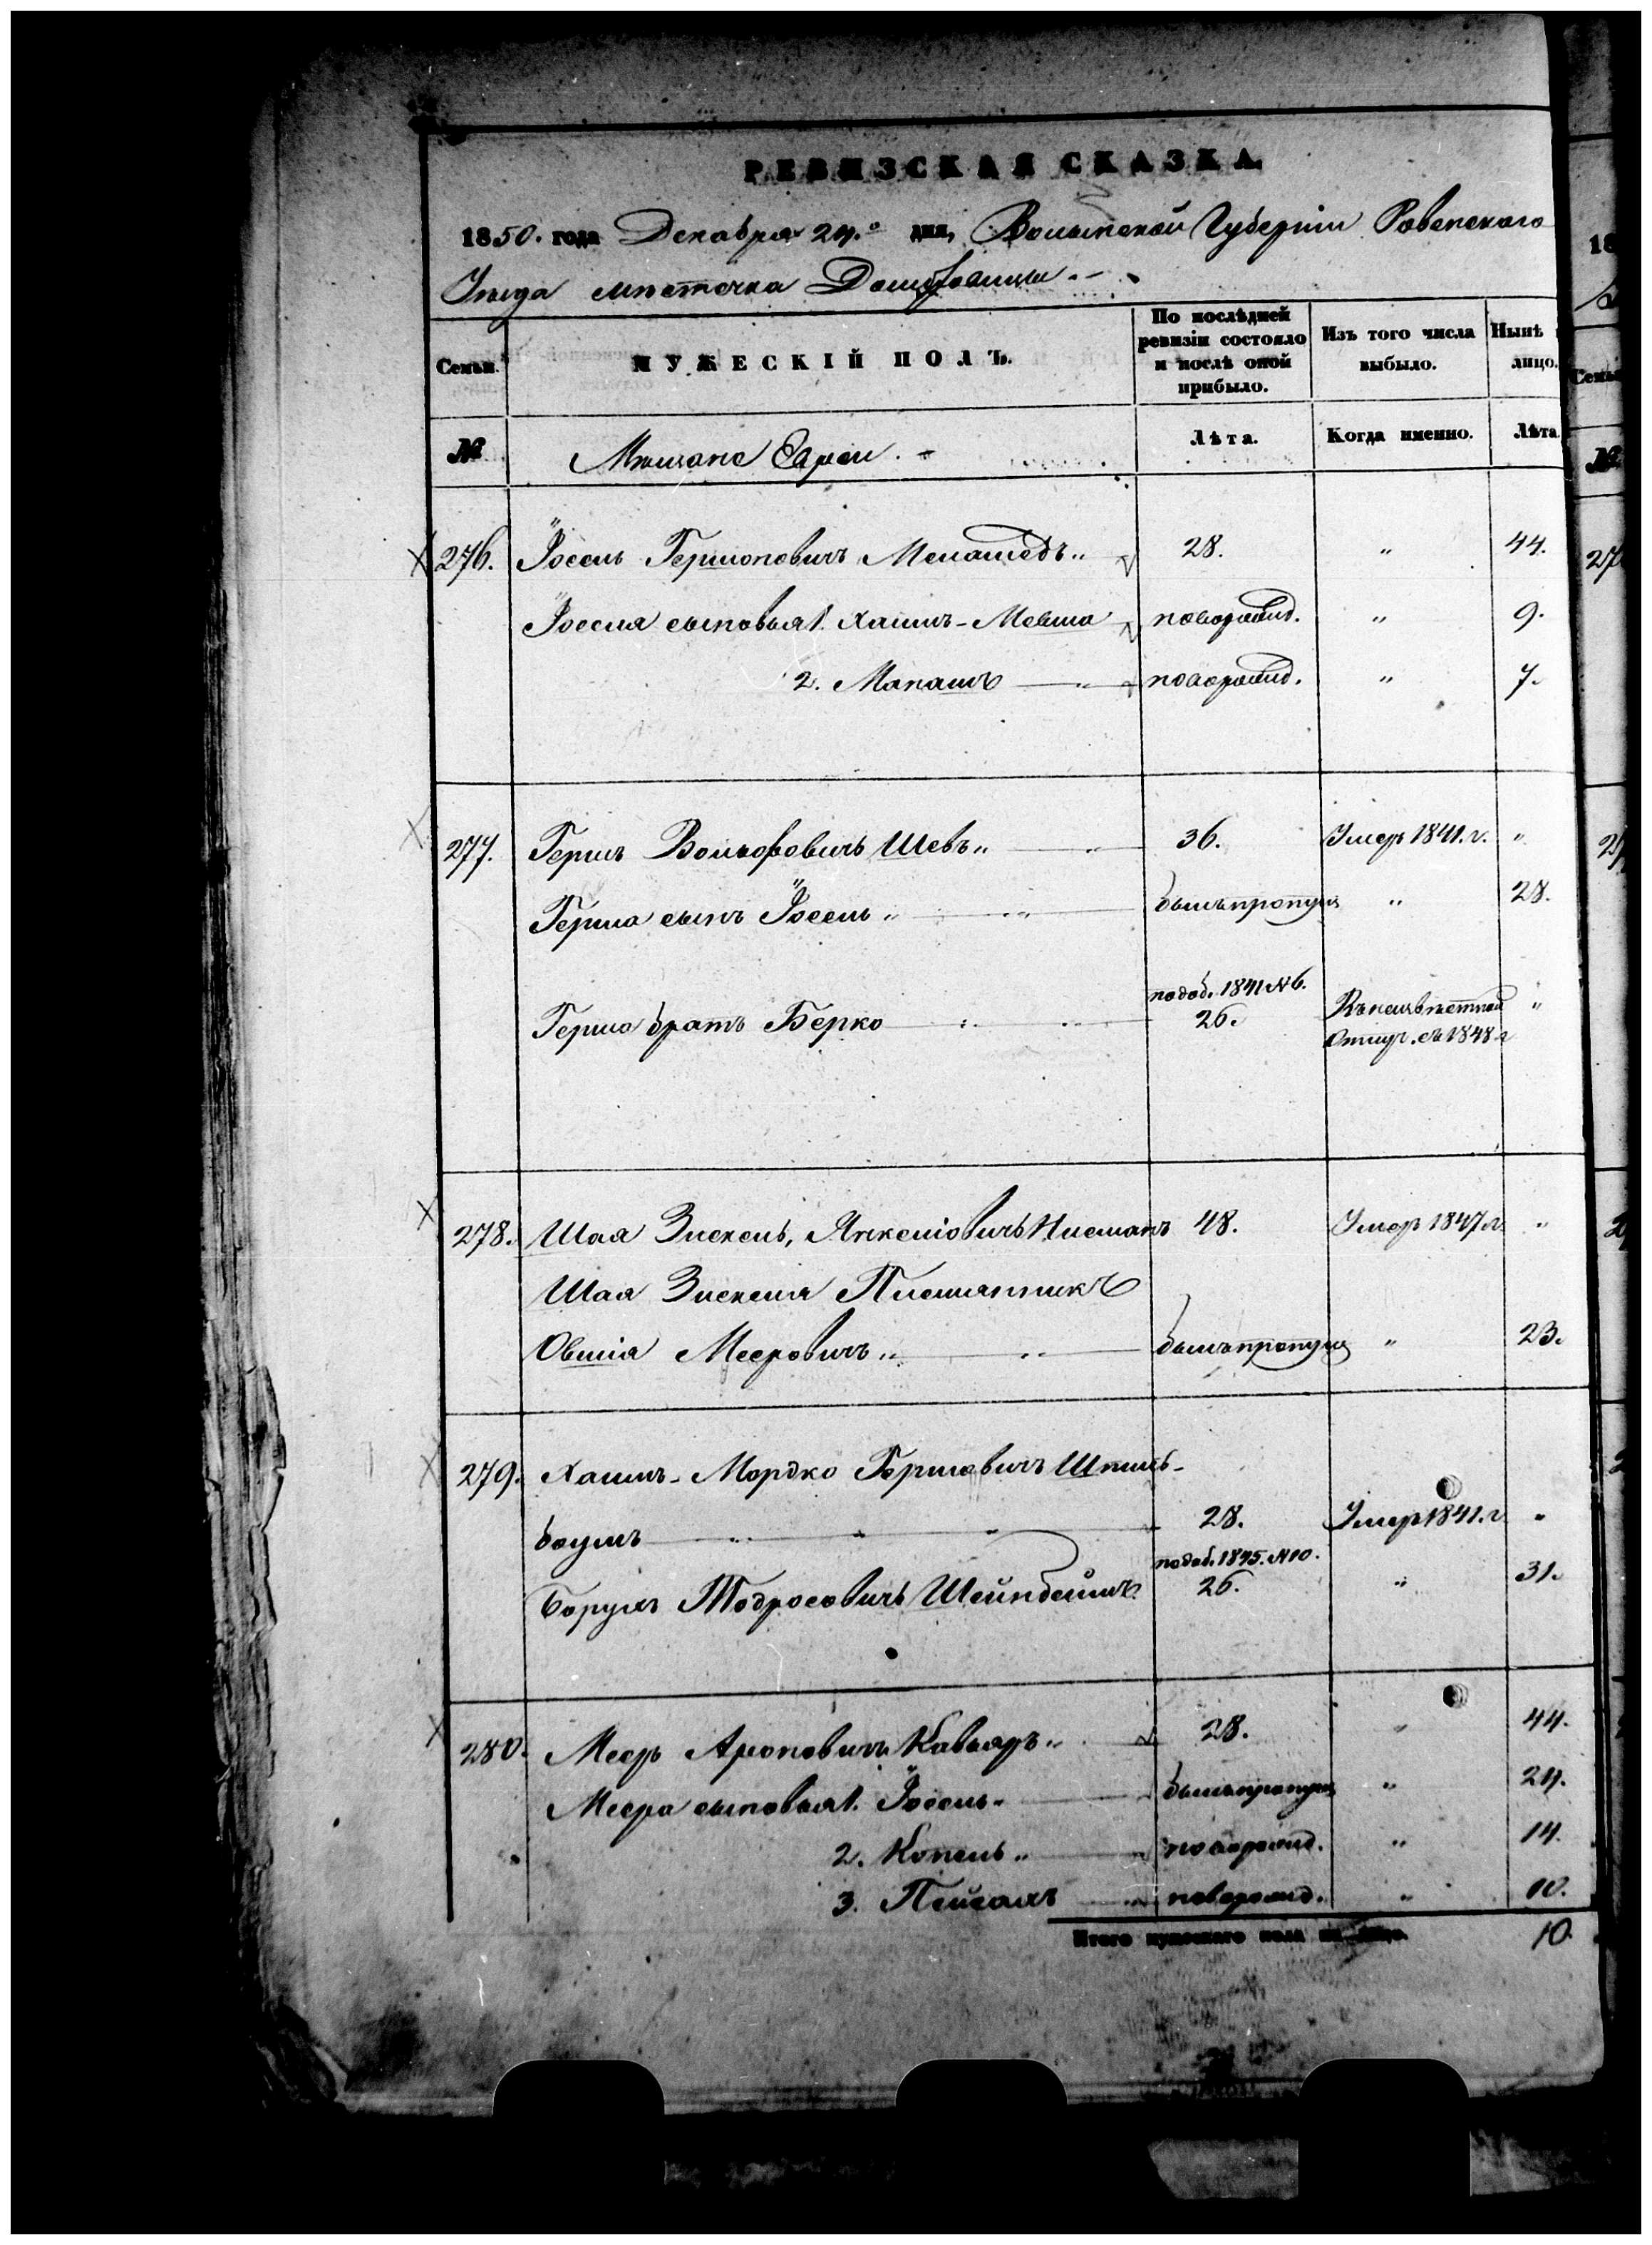 РЕВИЗСКАЯ СКАЗКА
1850. года Декабря 24.º дня, Волынской Губерніи Ровенского
Уѣзда мѣстечка Домбровицы
Семьи.
МУЖЕСКІЙ ПОЛЪ.
По послѣдней ревизіи состояло и послѣ оной прибыло.
Изъ того числа выбыло.
Нынѣ
лицо.
№
Мѣщане Евреи.
Лѣта.
Когда именно.
Лѣта
276. Іосель Гершоновичъ Меламедъ „ 28. „ 44.
Іоселя сыновья 1. Хаимъ-Мевша новорожд. „ 9.
2. Манашъ „ новорожд. „ 7.
277. Гершъ Вольфовичъ Шевъ „ 36. Умеръ 1841. г. „
Герша сынъ Іосель „ былъ пропущ „ 28.
подоб. 1841 № 6.
Герша братъ Берко 26. Въ неизвѣстной „
Отлуч. съ 1848 г
278. Шая Зискель, Янкелiовичъ 48. Умеръ 1847 г „
Шая Зискеля Племянникъ
Овшія Мееровичъ „ былъ пропущ „ 23.
279. Хаимъ-Мордко Гершовичъ Шпиль-
баумъ 28. Умеръ 1841. г „
подоб. 1845. № 10.
Борухъ Тодросовичъ Шейнбеймъ 26. „ 31.
280. Мееръ Ароновичъ Кавьяръ „ 28. „ 44.
Меера сыновья 1. Іосель былъ пропущ „ 24.
2. Копель „ новорожд. „ 14.
3. Пейсахъ новорожд. „ 10.
Итого мужескаго пола на лицо. 10